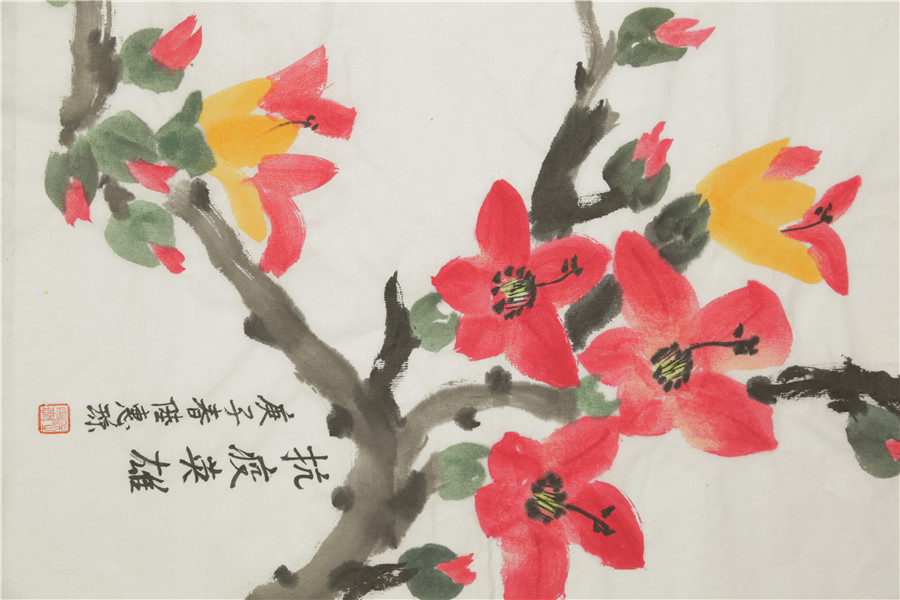 抗疫英雄
庚子春陸惠